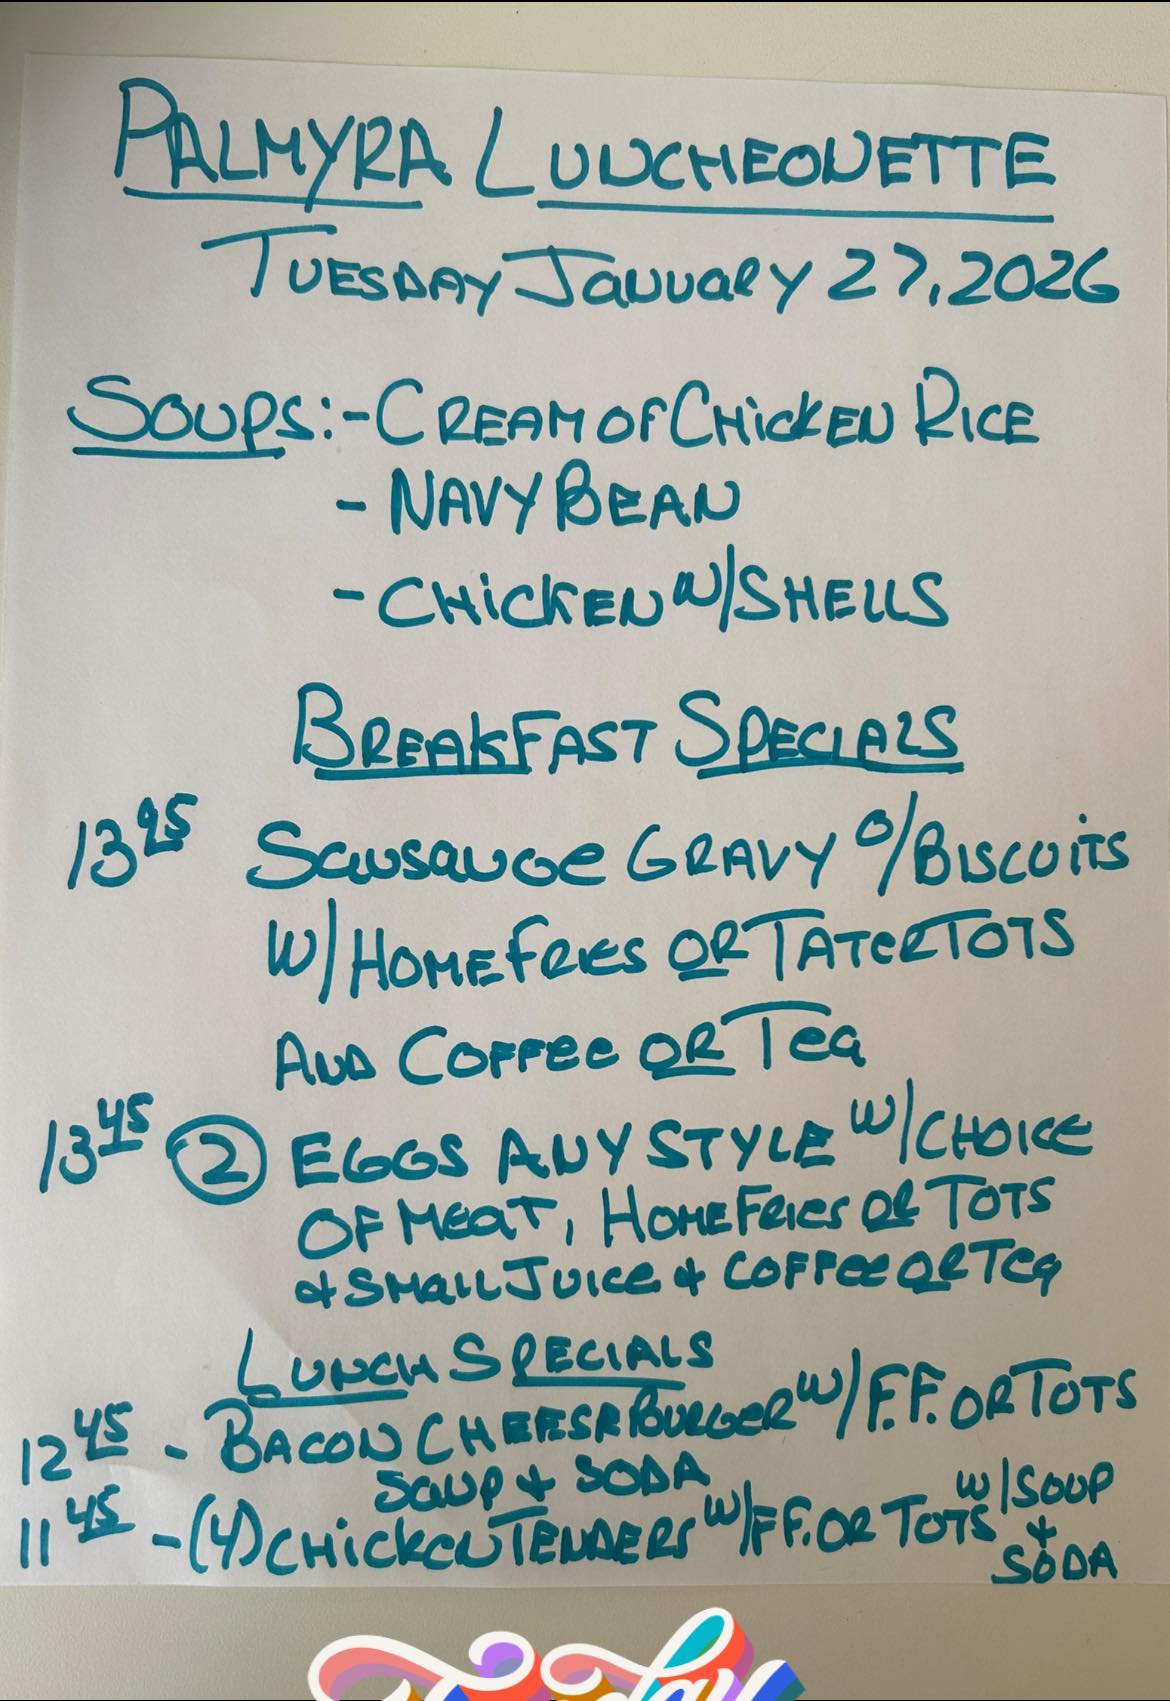 PALMYRA LUNCHEONETTE
TUESDAY JANUARY 27, 2026
SOUPS: - CREAM OF CHICKEN RICE
- NAVY BEAN
- CHICKEN W/SHELLS
BREAKFAST SPECIALS
13 95 SAUSAUGE GRAVY O/BISCUITS
W/HOMEFRIES OR TATERTOTS
AND COFFEE OR TEA
13 45 2 EGGS ANY STYLE W/CHOICE
OF MEAT, HOMEFRIES OR TOTS
& SMALL JUICE & COFFEE OR TEA
LUNCH SPECIALS
12 45 - BACON CHEESEBURGER W/F.F. OR TOTS
SOUP & SODA
11 45 - (4) CHICKEN TENDERS W/FF. OR TOTS W/SOUP
&
SODA